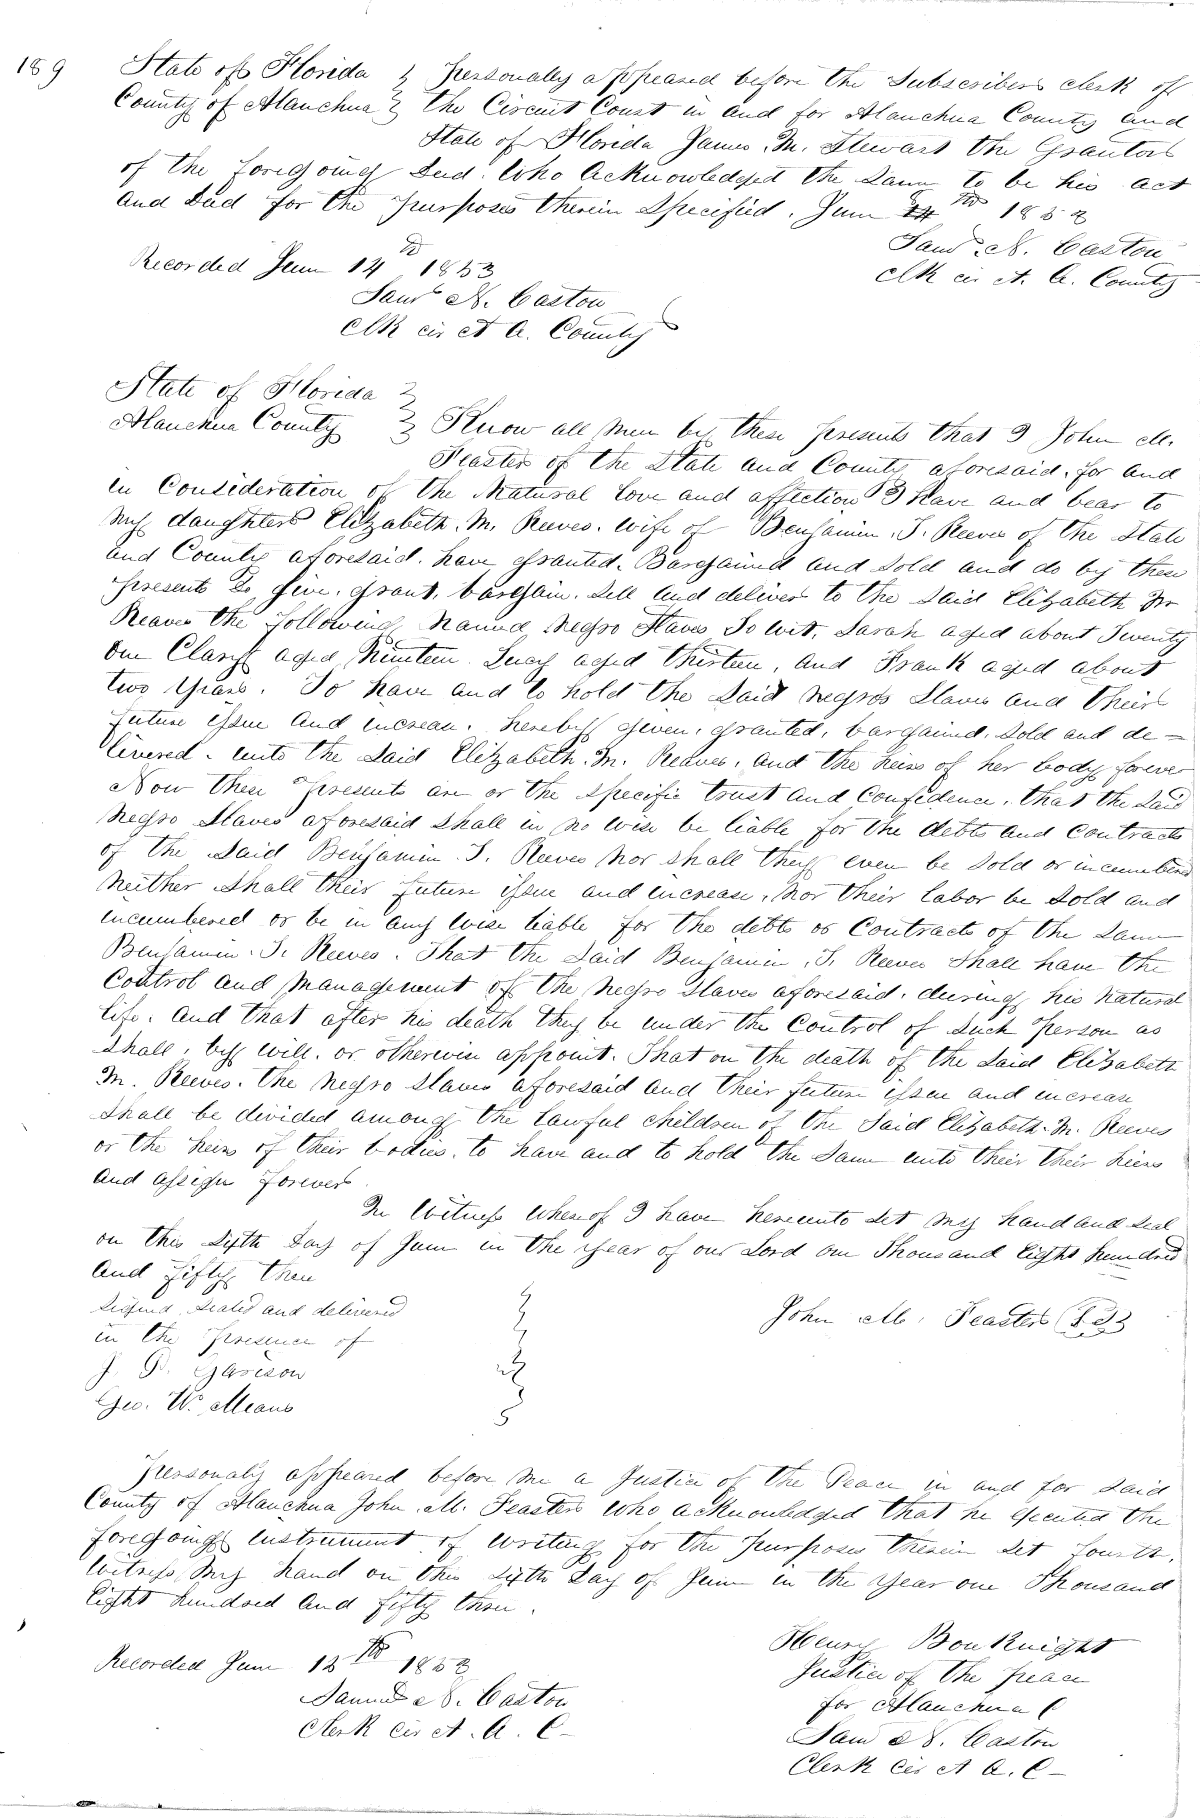 189
State of Florida } Personally appeared before the Subscriber clerk of
County of Alauchua } the Circuit Court in and for Alauchua County and
State of Florida James. M. Stewart the Grantor
of the foregoing Deed. Who Acknowledged the Same to be his act
and Deed for the purposes therein Specified. June 14th 1853
Saml. N. Caston
Clk cir ct. A. County
Recorded June 14th 1853
Saml N. Caston
Clk cir ct A. County
State of Florida }
Alauchua County } Know all men by these presents that I John M.
Feaster of the State and County aforesaid. for and
in Consideration of the Natural Love and affection I have and bear to
my daughter Elizabeth. M. Reeves. wife of Benjamin. T. Reeves of the State
and County aforesaid. have granted. Bargained and Sold and do by these
presents do give. grant. bargain. Sell and deliver to the Said Elizabeth M
Reaves the following named Negro Slaves To wit. Sarah aged about Twenty
One Clary aged Nineteen. Lucy aged thirteen, and Frank aged about
two years. To have and to hold the Said negros Slaves and their
future issue and increase. hereby given, granted, bargained, sold and de-
livered. unto the Said Elizabeth. M. Reaves. and the heirs of her body forever
Now these presents are or the specific trust and Confidence, that the Said
Negro Slaves aforesaid shall in no wise be liable for the debts and Contracts
of the Said Benjamin T. Reeves Nor shall they even be sold or incumbered
Neither shall their future issue and increase. Nor their labor be sold and
incumbered or be in any wise liable for the debts or Contracts of the Same
Benjamin. T. Reeves. That the Said Benjamin. T. Reeves Shall have the
Control and management of the Negro Slaves aforesaid. during his natural
life. And that after his death they be under the Control of such person as
Shall. by will. or otherwise appoint. That on the death of the Said Elizabeth
M. Reeves. the Negro Slaves aforesaid and their future issue and increase
Shall be divided among the lawful children of the Said Elizabeth. M. Reeves
or the heirs of their bodies. to have and to hold the Same unto their their heirs
and assign forever.
In Witness Whereof I have hereunto set my hand and Seal
on this Sixth Day of June in the year of our Lord one Thousand Eight hundred
And fifty three
Signed Sealed and delivered
in the presence of
J. D. Garison
Geo. W. Means
John M. Feaster (L.S)
Personally appeared before me a Justice of the Peace in and for said
County of Alauchua John. M. Feaster Who acknowledged that he executed the
foregoing Instrument of writing for the purposes therein Set fourth.
Witness My hand on this Sixth Day of June in the year one Thousand
Eight hundred and fifty three.
Henry Bouknight
Justice of the peace
for Alauchua C
Recorded June 15th 1853
Samuel N. Caston
Clerk cir ct. A. C
Saml N. Caston
Clerk cir ct A. C